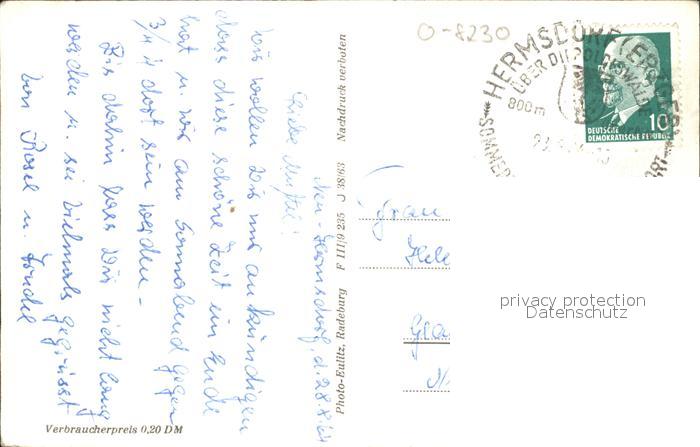 O-8230
HERMSDORF (ERZGEB.
ÜBER DIPPOLDISWALDE
800m
SOMMER
DEUTSCHE
DEMOKRATISCHE REPUBLIK
10
Neu-Hermsdorf, d. 28.8.64
Liebe
wir wollen Dir nur ankündigen
dass diese schöne Zeit ein Ende
hat u. wir am Sonnabend gegen
3/4 4 dort sein werden -
Bis dahin lass Dir nicht lang
werden u. sei vielmals gegrüsst
von Rosel u.
Photo-Eulitz, Radeburg F III/9 235 J 38/63 Nachdruck verboten
Frau
Hele
Gla
Verbraucherpreis 0,20 DM
privacy protection
Datenschutz